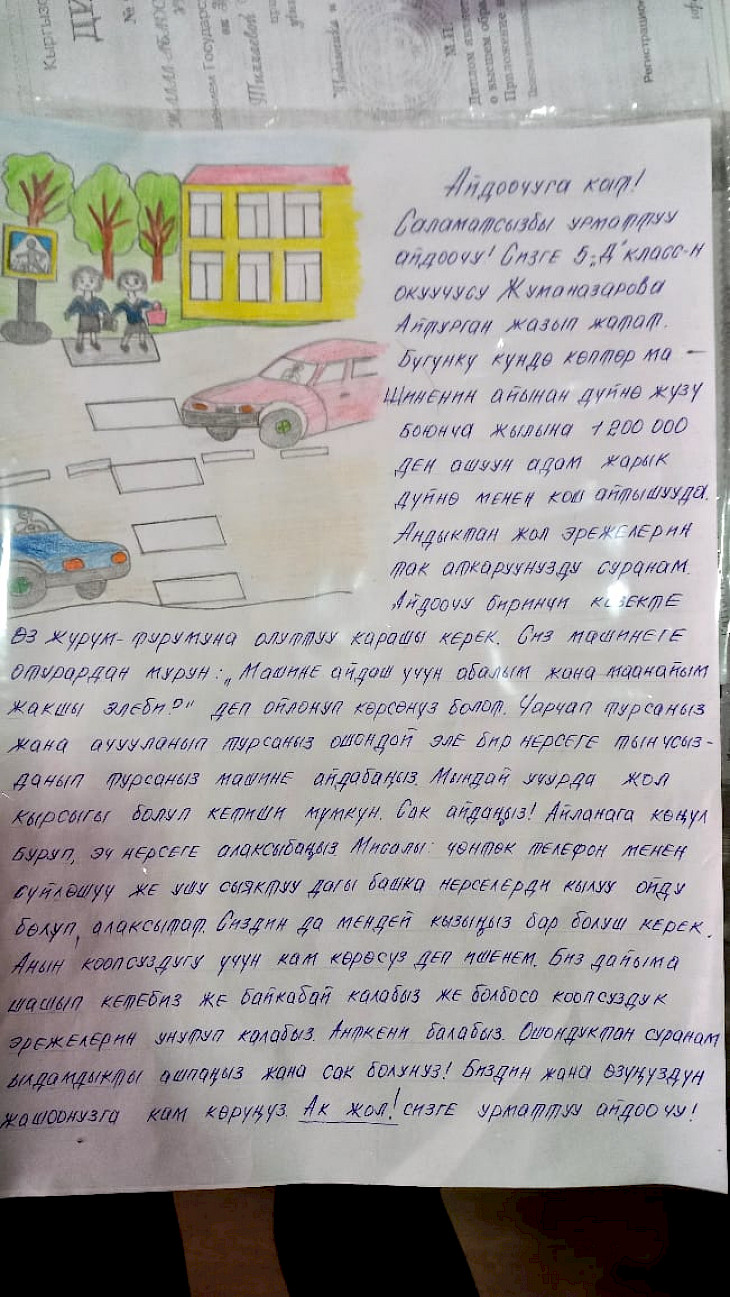 Кыргызс
ДИ
№
Тихаевой
М.П.
Диплом
о высшем обра
Приложение
Регистрацион
Айдоочуга кат!
Саламатсызбы урматтуу
айдоочу! Сизге 5 „Д" класс-н
окуучусу Жуманазарова
Айтурган жазып жатат.
Бугунку кундө көптөр ма –
шиненин айынан дүйнө жузу
боюнча жылына 1 200 000
ден ашуун адам жарык
дүйнө менен кош айтышууда.
Андыктан жол эрежелерин
так аткаруунузду суранам.
Айдоочу биринчи кезекте
өз журум-турумуна олуттуу карашы керек. Сиз машинеге
отурардан мурун: „Машине айдаш учун абалым жана маанайым
жакшы элеби?" деп ойлонуп көрсөнуз болот. Чарчап турсаныз
жана ачууланып турсаныз ошондой эле бир нерсеге тынчсыз-
данып турсаныз машине айдабаңыз. Мындай учурда жол
кырсыгы болуп кетиши мумкун. Сак айдаңыз! Айланага көңүл
буруп, эч нерсеге алаксыбаңыз. Мисалы: чөнтөк телефон менен
суйлөшүү же ушу сыяктуу дагы башка нерселерди кылуу ойду
бөлуп, алаксытат. Сиздин да мендей кызыңыз бар болуш керек.
Анын коопсуздугу учун кам көрөсуз деп ишенем. Биз дайыма
шашып кетебиз же байкабай калабыз же болбосо коопсуздук
эрежелерин унутуп калабыз. Анткени балабыз. Ошондуктан суранам
ылдамдыкты ашпаңыз жана сак болунуз! Биздин жана өзүңүздүн
жашоонузга кам көруңуз. Ак жол! сизге урматтуу айдоочу!